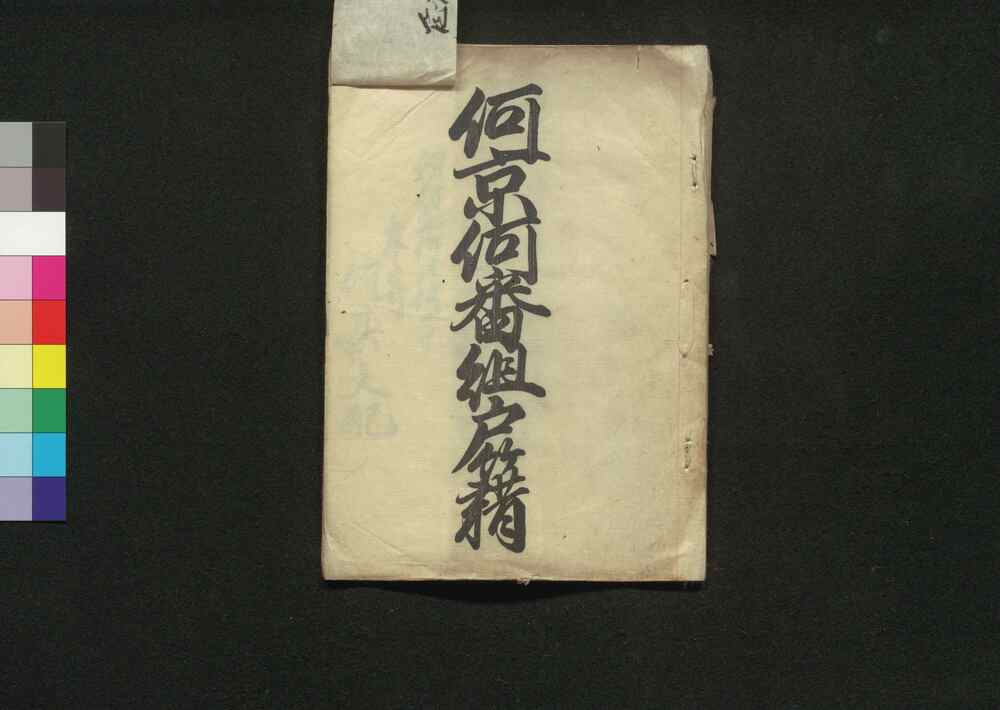 何京何番組戸籍